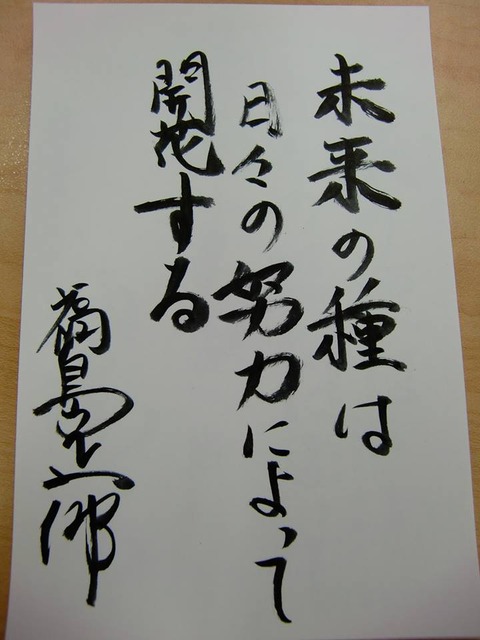 未来の種は
日々の努力によって
開花する
福島